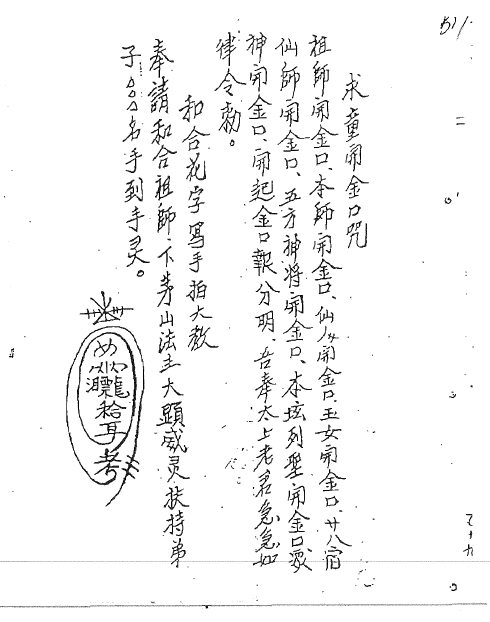 求童開金口咒
祖師開金口、本師開金口、仙人開金口、玉女開金口、廿八宿
仙師開金口、五方神將開金口、本坛列聖開金口、眾
神開金口、開起金口報分明、吾奉太上老君急急如
律令勅。
和合花字寫手拍大教
奉請和合祖師、下茅山法主大顯威灵扶持弟
子 名手到手灵。
51